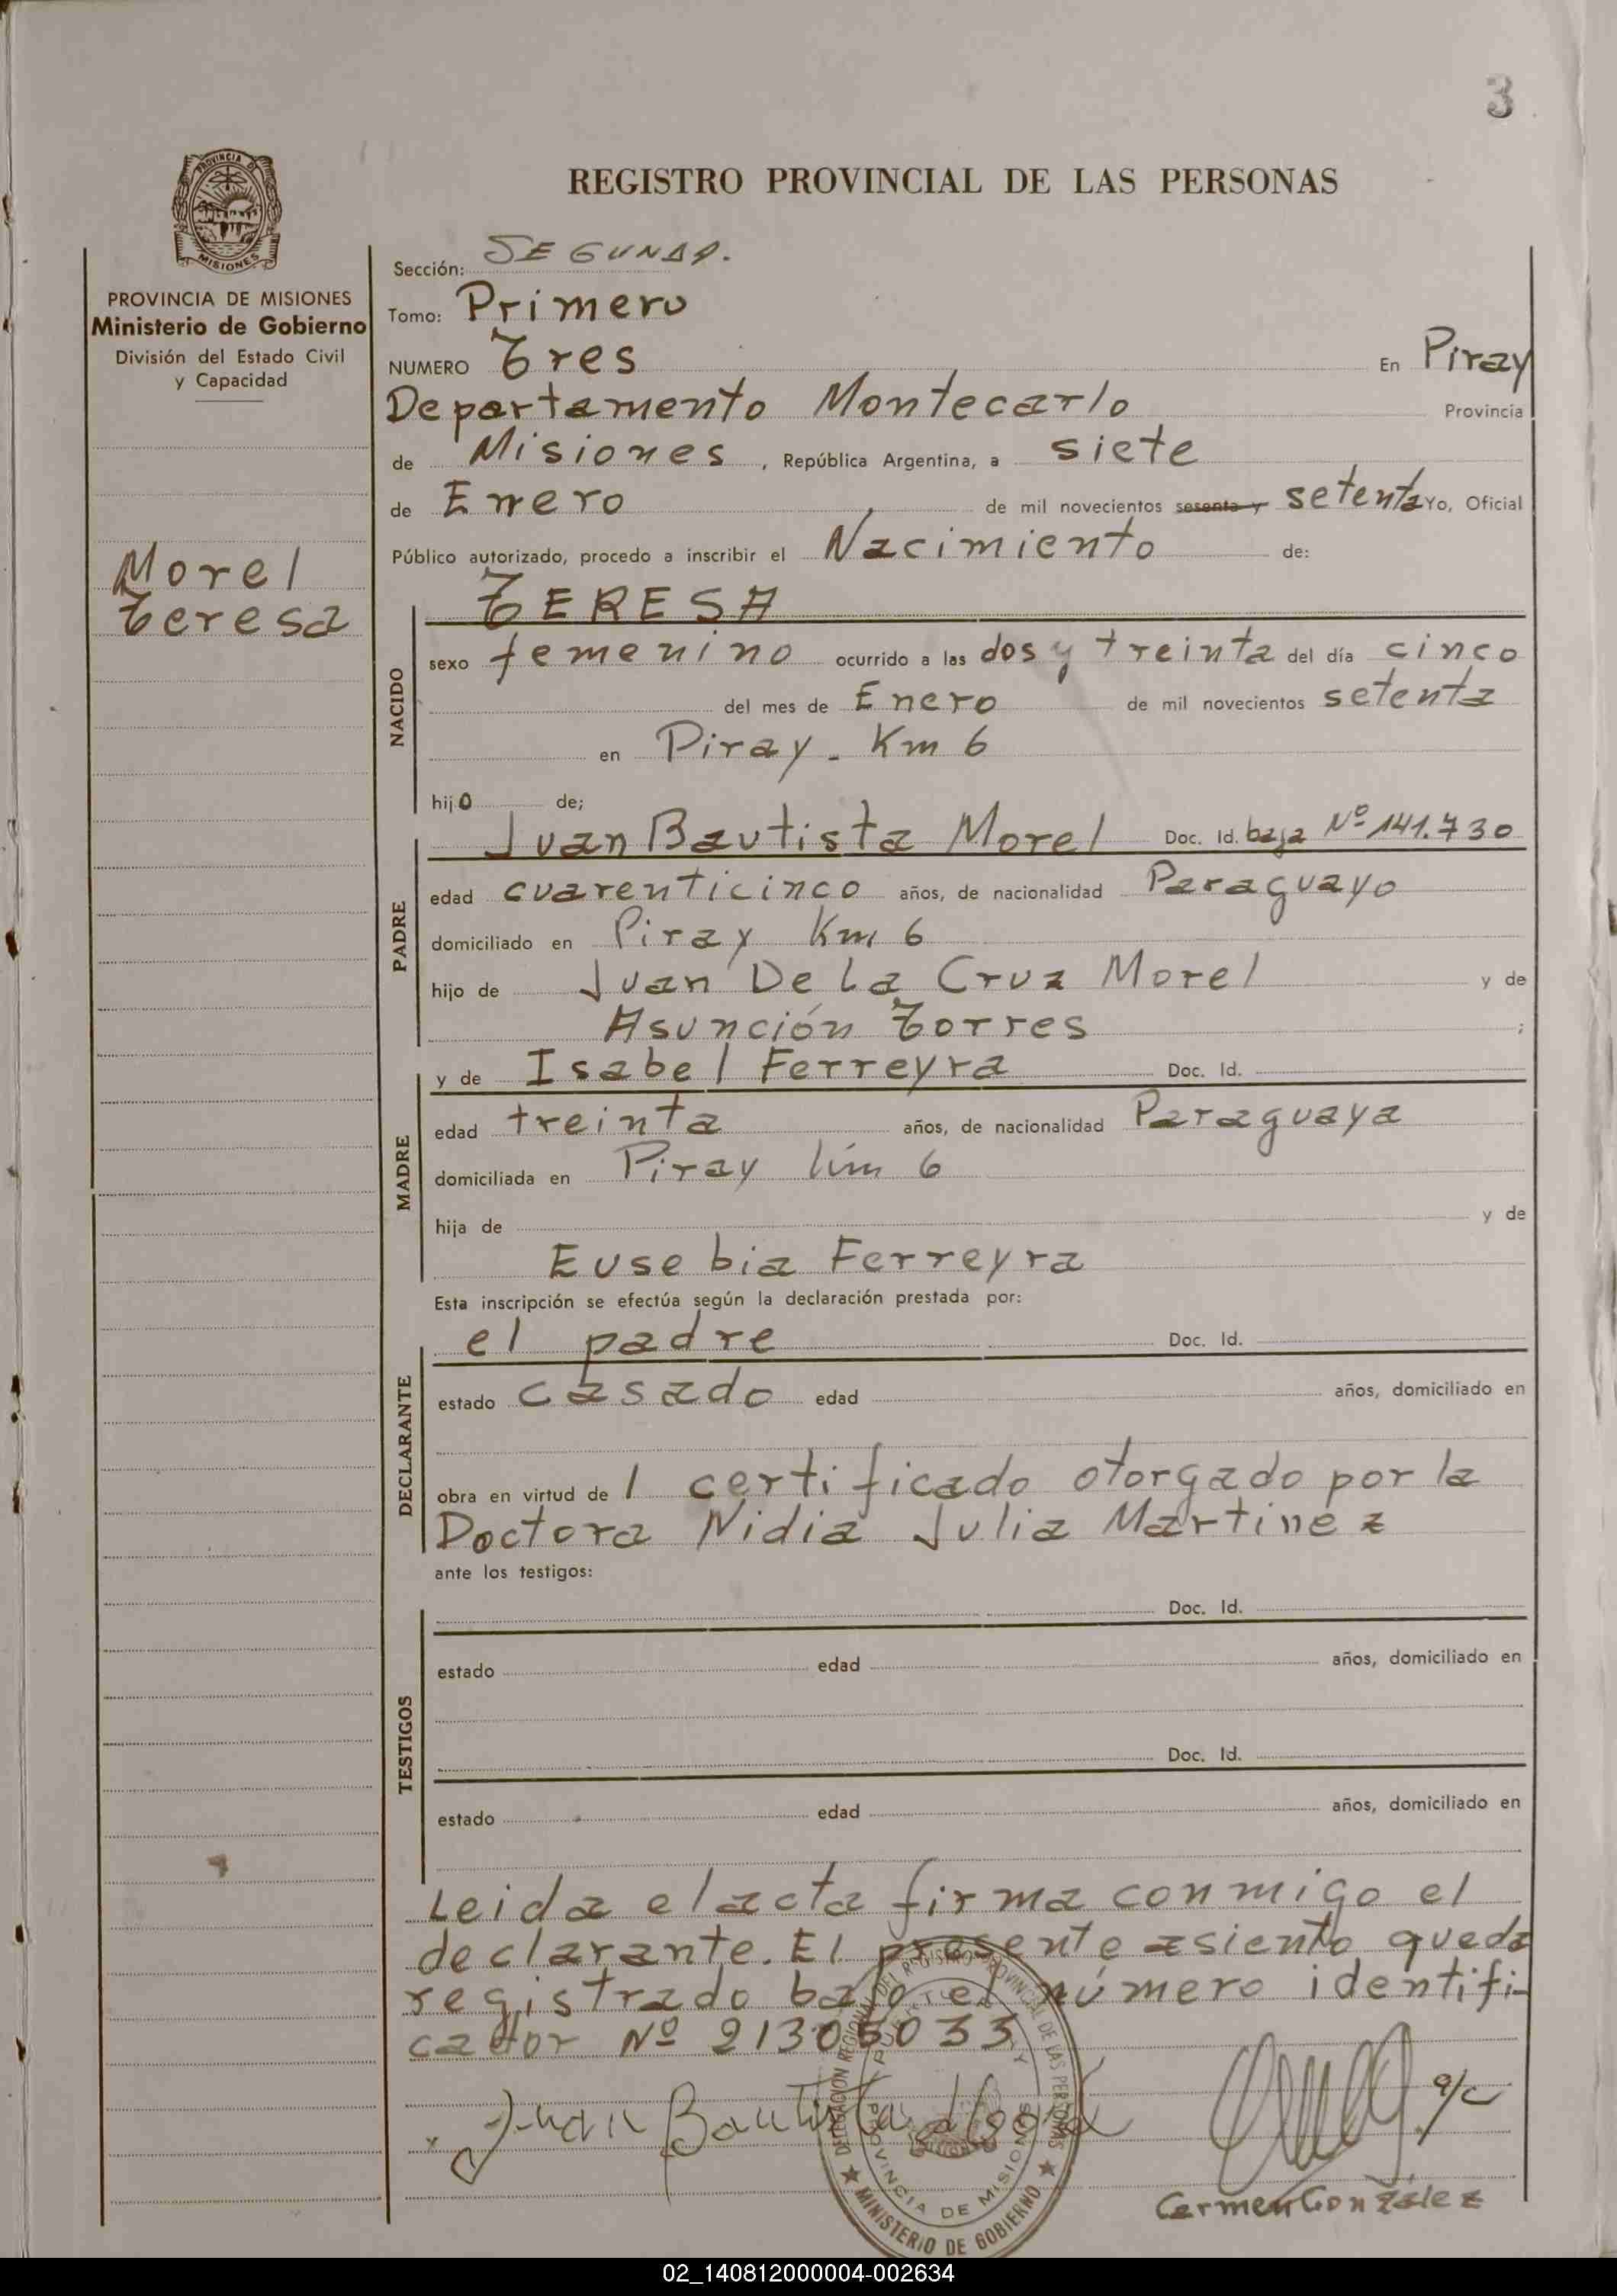 3
PROVINCIA DE
MISIONES
REGISTRO PROVINCIAL DE LAS PERSONAS
PROVINCIA DE MISIONES
Ministerio de Gobierno
División del Estado Civil
y Capacidad
Morel
Teresa
Sección: SEGUNDA.
Tomo: Primero
NUMERO Tres En Piray
Departamento Montecarlo Provincia
de Misiones, República Argentina, a siete
de Enero de mil novecientos sesenta y setenta Yo, Oficial
Público autorizado, procedo a inscribir el Nacimiento de:
NACIDO
TERESA
sexo femenino ocurrido a las dos y treinta del día cinco
del mes de Enero de mil novecientos setenta
en Piray - Km 6
hijo de;
PADRE
Juan Bautista Morel Doc. Id. baja Nº 141.730
edad cuarenticinco años, de nacionalidad Paraguayo
domiciliado en Piray Km 6
hijo de Juan De La Cruz Morel y de
Asunción Torres ;
MADRE
y de Isabel Ferreyra Doc. Id.
edad treinta años, de nacionalidad Paraguaya
domiciliada en Piray km 6
hija de y de
Eusebia Ferreyra
Esta inscripción se efectúa según la declaración prestada por:
DECLARANTE
el padre Doc. Id.
estado casado edad años, domiciliado en
obra en virtud de 1 certificado otorgado por la
Doctora Nidia Julia Martinez
ante los testigos:
TESTIGOS
Doc. Id.
estado edad años, domiciliado en
Doc. Id.
estado edad años, domiciliado en
Leida el acta firma conmigo el
declarante. El presente asiento queda
registrado bajo el número identifi-
cador Nº 21305033
Juan Bautista
a/c
Carmen González
DELEGACION REGIONAL DEL REGISTRO PROVINCIAL DE LAS PERSONAS
PROVINCIA DE MISIONES
★ MINISTERIO DE GOBIERNO ★
02_140812000004-002634